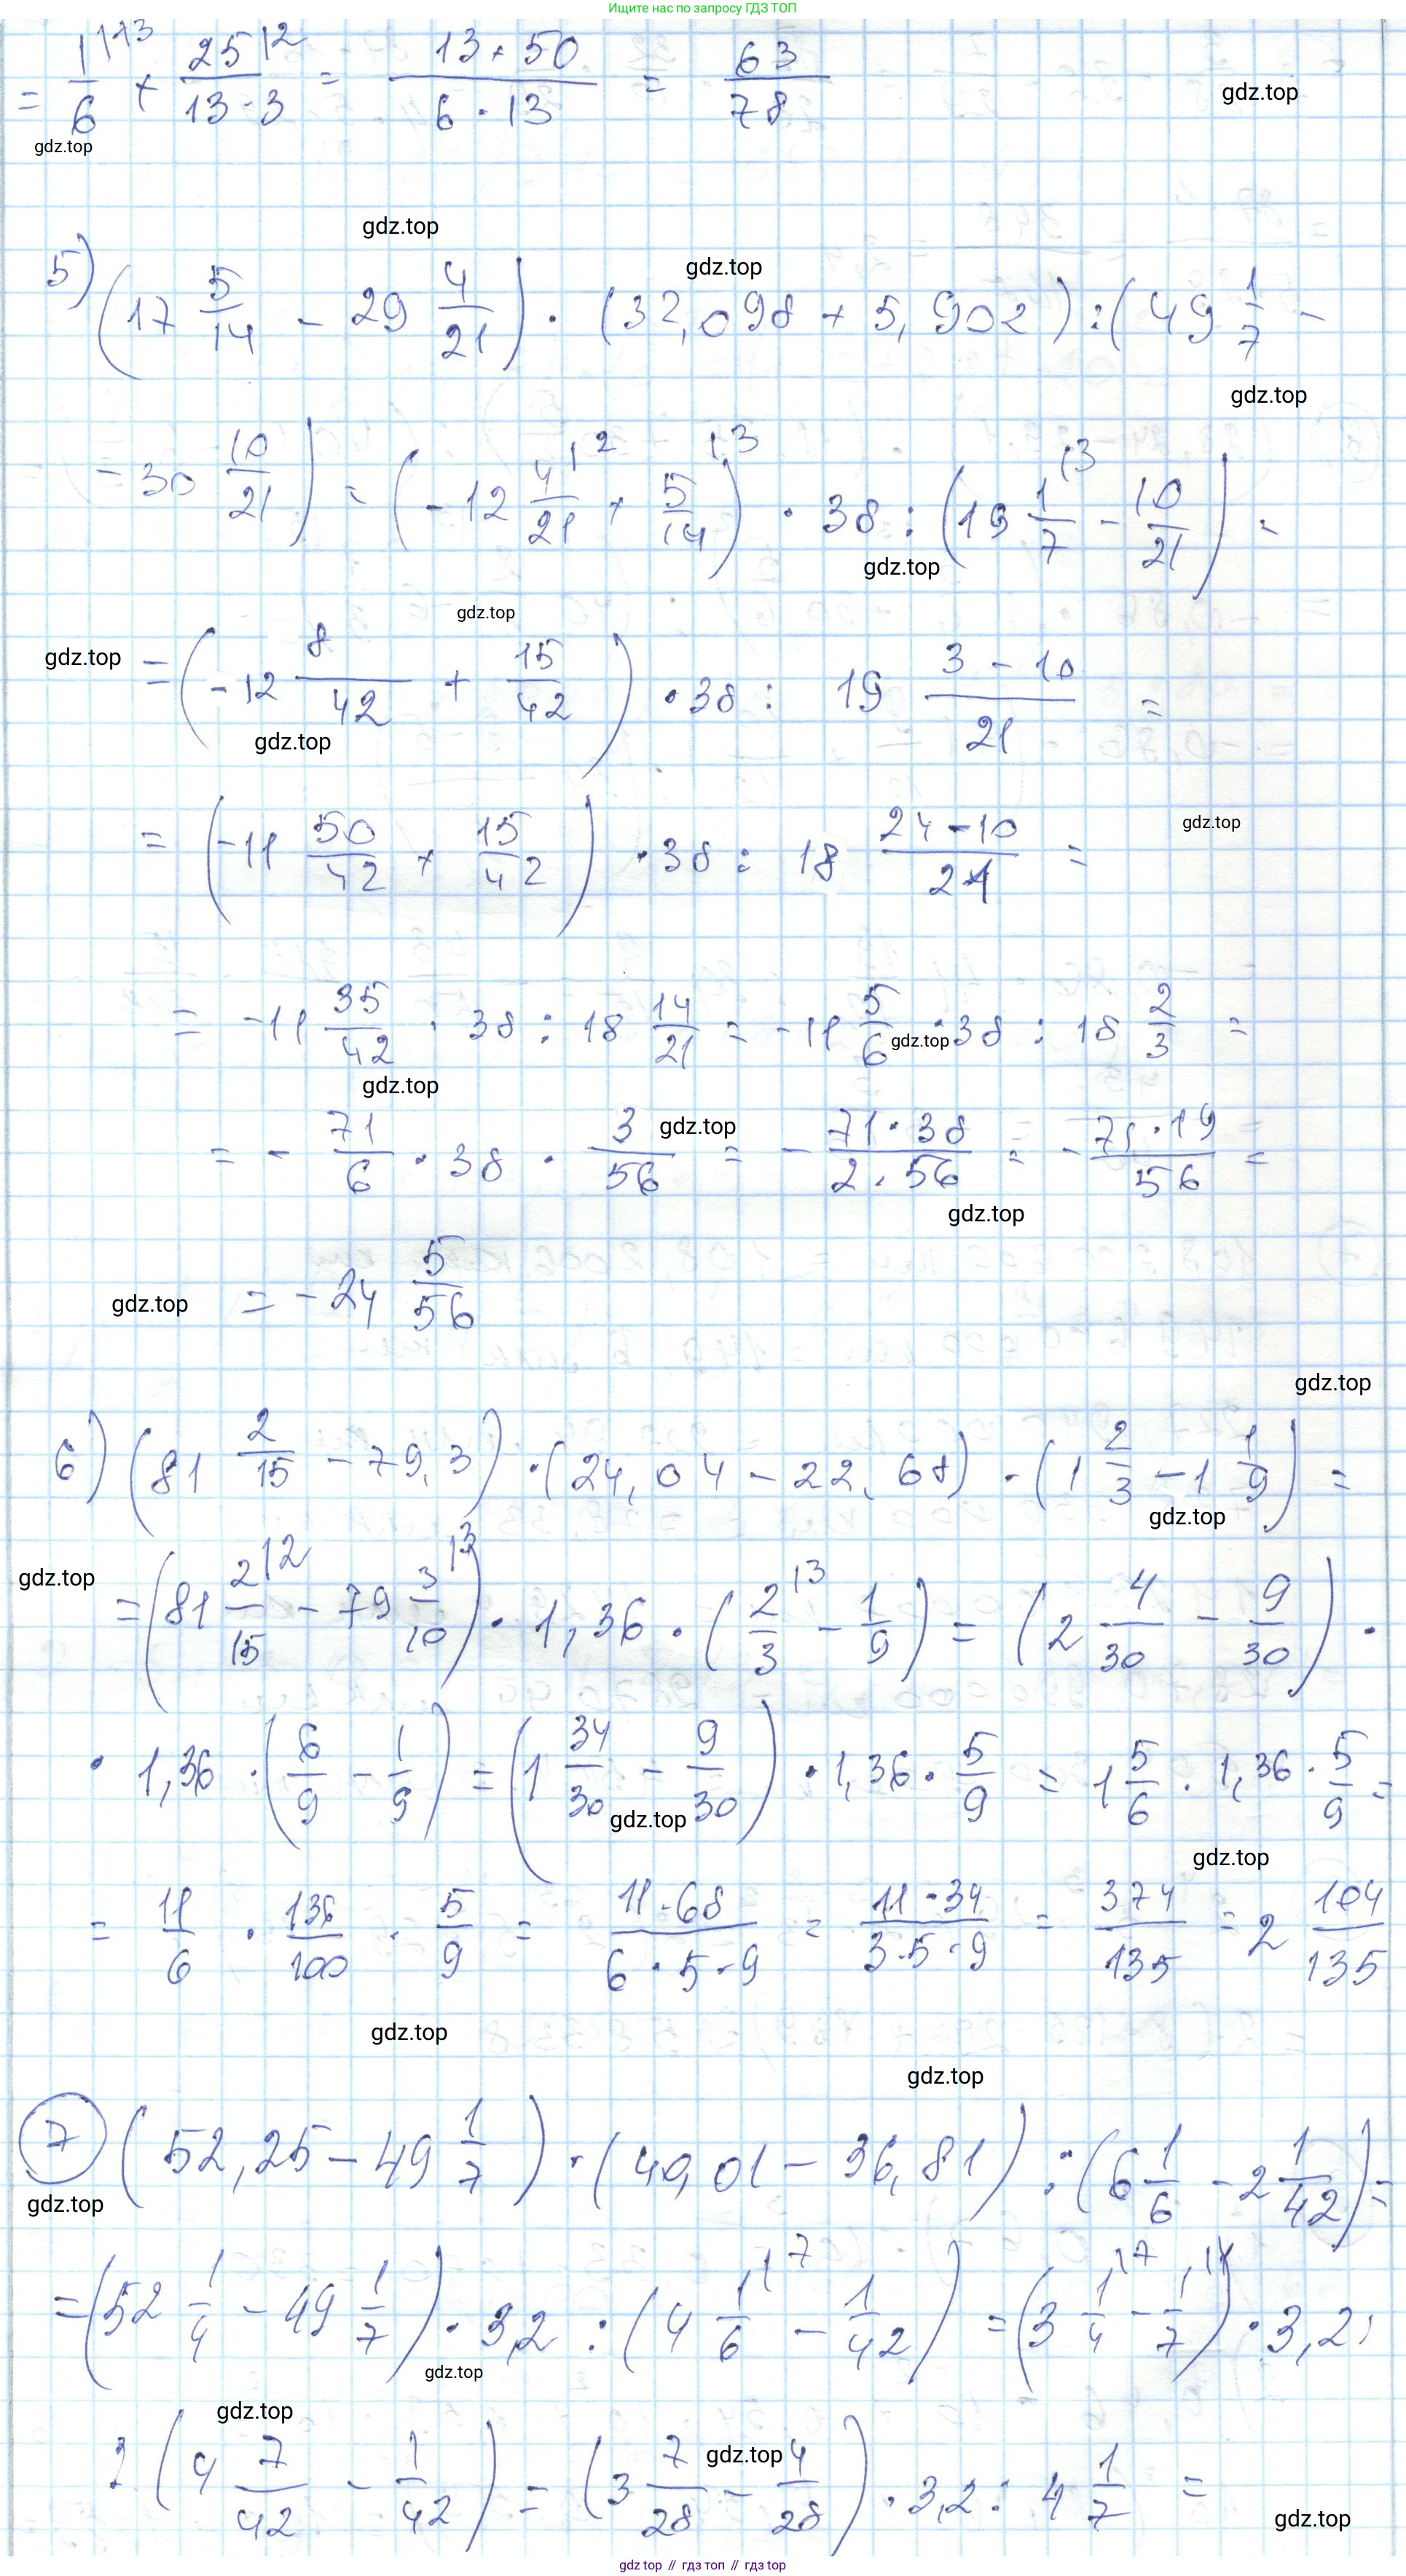 Ищите нас по запросу ГДЗ ТОП
= 1/6 |·13 + 25/(13·3) |·2 = (13+50)/(6·13) = 63/78
gdz.top
gdz.top
gdz.top
gdz.top
5) (17 5/14 - 29 4/21) · (32,098 + 5,902) : (49 1/7 -
gdz.top
- 30 10/21) = (-12 4/21 |2 + 5/14 |3) · 38 : (19 1/7 |3 - 10/21) =
gdz.top
gdz.top
gdz.top
= (-12 8/42 + 15/42) · 38 : 19 (3-10)/21 =
gdz.top
gdz.top
= (-11 50/42 + 15/42) · 38 : 18 (24-10)/21 =
= -11 35/42 · 38 : 18 14/21 = -11 5/6 · 38 : 18 2/3 =
gdz.top
gdz.top
gdz.top
= - 71/6 · 38 · 3/56 = - (71·38)/(2·56) = - (71·19)/56 =
gdz.top
gdz.top
= -24 5/56
gdz.top
6) (81 2/15 - 79,3) · (24,04 - 22,68) · (1 2/3 - 1 1/9) =
gdz.top
gdz.top
= (81 2/15 |2 - 79 3/10 |3) · 1,36 · (2/3 |3 - 1/9) = (2 4/30 - 9/30) ·
· 1,36 · (6/9 - 1/9) = (1 34/30 - 9/30) · 1,36 · 5/9 = 1 5/6 · 1,36 · 5/9 =
gdz.top
gdz.top
= 11/6 · 136/100 · 5/9 = (11·68)/(6·5·9) = (11·34)/(3·5·9) = 374/135 = 2 104/135
gdz.top
gdz.top
7 (52,25 - 49 1/7) · (40,01 - 36,81) : (6 1/6 - 2 1/42) =
gdz.top
= (52 1/4 - 49 1/7) · 3,2 : (4 1/6 |7 - 1/42) = (3 1/4 |7 - 1/7 |4) · 3,2 :
gdz.top
gdz.top
: (4 7/42 - 1/42) = (3 7/28 - 4/28) · 3,2 : 4 1/7 =
gdz.top
gdz.top
gdz.top // гдз топ // гдз top